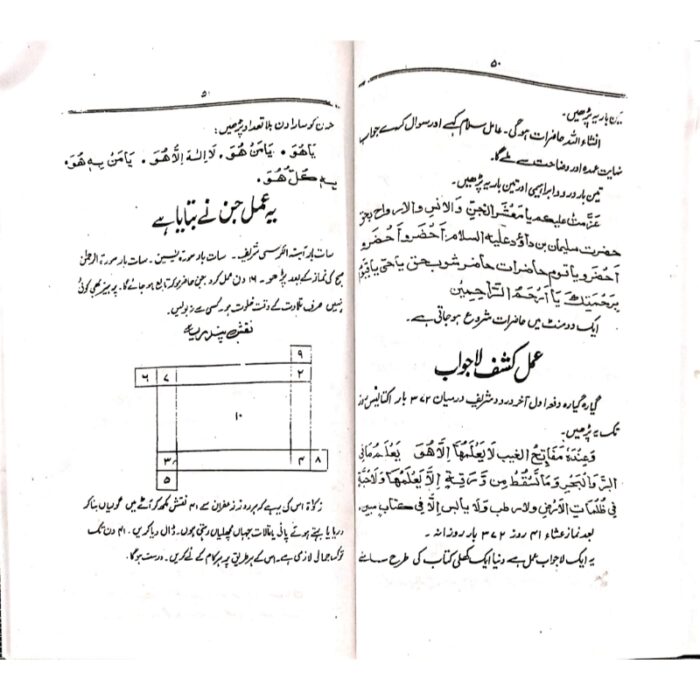 ۵۰
بار یہ پڑھیں۔
انشاء اللہ حاضرات ہوگی۔ عامل سلام کہے اور سوال کرے جواب
نہایت عمدہ اور وضاحت سے ملے گا۔
تین بار درود ابراہیمی اور تین بار یہ پڑھیں۔
عَزَّمْتُ عَلَیْکُم یَا مَعْشَرَ الْجِنِّ وَالْاِنْسِ وَالْاَرْوَاحِ بِحَقِّ
حضرت سلیمان بن داؤد علیہ السلام اُحْضُرُو اُحْضُرُو
اُحْضُرُو یا قوم حاضرات حاضر شو بحق یا حی یا قیوم
بِرَحْمَتِکَ یَا اَرْحَمَ الرَّاحِمِیْن
ایک دو منٹ میں حاضرات شروع ہو جاتی ہے۔
عمل کشف لاجواب
گیارہ گیارہ دفعہ اول آخر درود شریف درمیان ۳۷۲ بار اکتالیس یوم
تک یہ پڑھیں۔
وَعِنْدَهٗ مَفَاتِحُ الْغَیْبِ لَا یَعْلَمُهَا اِلَّا هُوَ یَعْلَمُ مَا فِی
الْبَرِّ وَالْبَحْرِ وَمَا تَسْقُطُ مِنْ وَرَقَةٍ اِلَّا یَعْلَمُهَا وَلَا حَبَّةٍ
فِی ظُلُمَاتِ الْاَرْضِ وَلَا رطب وَلَا یابس اِلَّا فِی کتاب مبین
بعد نماز عشاء ۴۱ روز ۳۷۲ بار روزانہ۔
یہ ایک لاجواب عمل ہے دنیا ایک کھلی کتاب کی طرح سامنے
۵
دن کو سارا دن بلا تعداد پڑھیں:
یَاهُوَ۔ یَا مَنْ هُوَ۔ لَا اِلٰهَ اِلَّا هُوَ۔ یَا مَنْ بِهٖ هُوَ۔
بِهٖ کُلُّ هُوَ۔
یہ عمل جن نے بتایا ہے
سات بار آیتہ الکرسی شریف۔ سات بار سورۃ یٰسین۔ سات بار سورۃ الرحمٰن
صبح کی نماز کے بعد پڑھو۔ ۱۶ دن عمل کرو۔ جن حاضر ہو کر تابع ہو جائے گا۔ پرہیز بھی کوئی
نہیں صرف تلاوت کے وقت خلوت ہو۔ کسی سے نہ بولیں۔
نقش پندرہ یہ ہے
۹
۶ ۷ ۲
۱۰
۳ ۴ ۸
۵
زکوٰۃ اس کی یہ ہے کہ ہر روز زعفران سے ۴۱ نقش لکھ کر آٹے میں گولیاں بنا کر
دریا یا بہتے ہوئے پانی یا تالاب جہاں مچھلیاں رہتی ہوں۔ ڈال دیا کریں۔ ۴۱ دن تک
ترک جمالی لازمی ہے۔ اس کے ہر طریق پر ہر کام کے لئے کریں۔ درست ہوگا۔